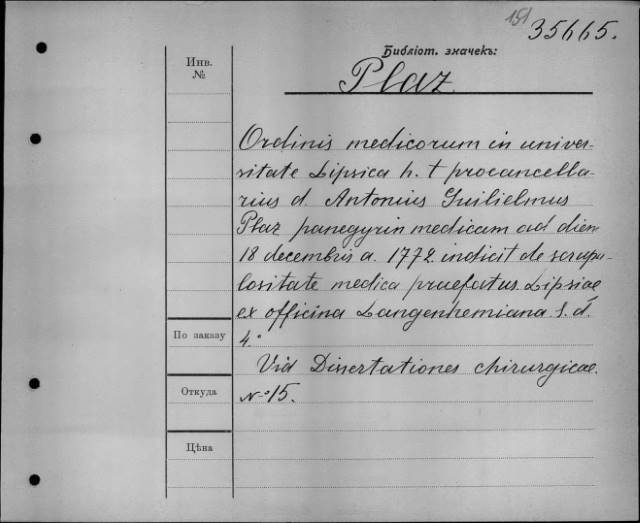 151
35665.
Библіот. значекъ:
Plaz
Инв.
№
Ordinis medicorum in univer-
sitate Lipsica h. t procancella-
rius d. Antonius Guilielmus
Plaz panegyrin medicam ad diem
18 decembris a. 1772 indicit de scrupu-
lositate medica praefatus. Lipsiae
ex officina Langenhemiana s. d.
4.°
Vid Dissertationes chirurgicae.
№ 15.
По заказу
Откуда
Цѣна